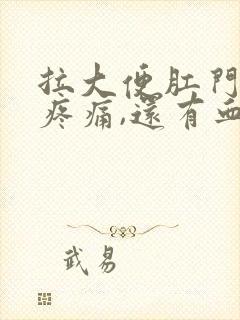 拉大便肛門
疼痛,還有血
武易